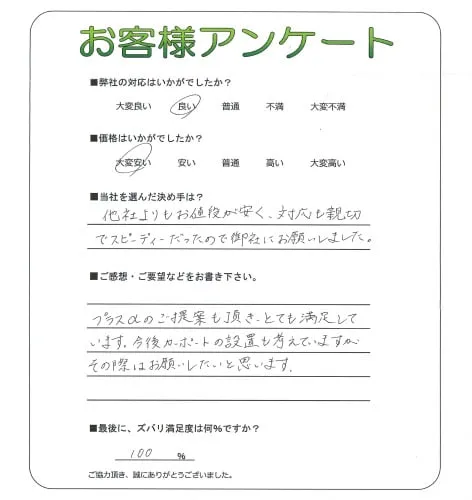 お客様アンケート
■弊社の対応はいかがでしたか？
大変良い 良い 普通 不満 大変不満
■価格はいかがでしたか？
大変安い 安い 普通 高い 大変高い
■当社を選んだ決め手は？
他社よりもお値段が安く、対応も親切
でスピーディーだったので御社にお願いしました。
■ご感想・ご要望などをお書き下さい。
プラスαのご提案も頂き、とても満足して
います。今後カーポートの設置も考えていますが
その際はお願いしたいと思います。
■最後に、ズバリ満足度は何％ですか？
100 ％
ご協力頂き、誠にありがとうございました。